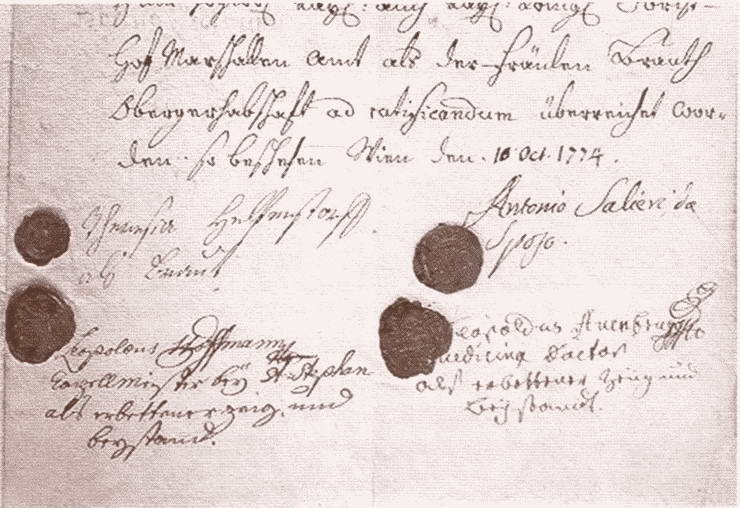 Hof Marschallen Amt als der Fräulen Brauth
Obergerhabschaft ad ratificandum überreichet wor-
den. so beschehen Wien den. 10 Oct. 1774.
Theresia Helfenstorff
als Braut
Antonio Salieri da
Sposo.
Leopoldus Hoffmann
Capellmeister bey St. Stephan
als erbettener zeig. und
beystand.
Leopoldus Auenbrugg
Medicinæ Doctor
als erbettener Zeug und
beystandt.